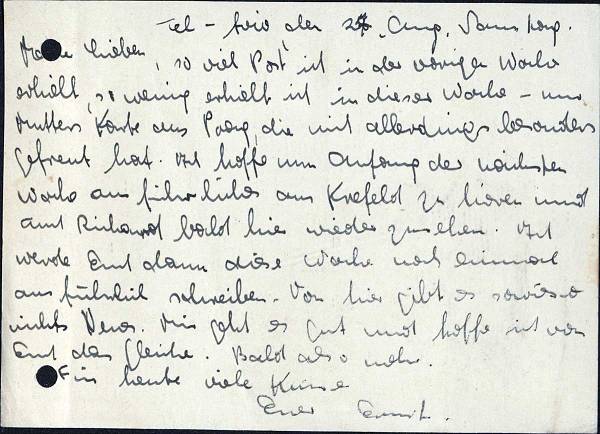 Tel-Aviv den 25. Aug. Samstag.
Meine Lieben, so viel Post ich in der vorigen Woche
erhielt, so wenig erhielt ich in dieser Woche – nur
Mutters Karte aus Prag, die mich allerdings besonders
gefreut hat. Ich hoffe nun Anfang der nächsten
Woche ausführliches aus Krefeld zu hören und
auch Richard bald hier wieder zu sehen. Ich
werde Euch dann diese Woche noch einmal
ausführlich schreiben. Von hier gibt es sowieso
nichts Neues. Mir geht es gut und hoffe ich von
Euch das Gleiche. Bald also mehr.
Für heute viele Küsse
Euer Ernst.